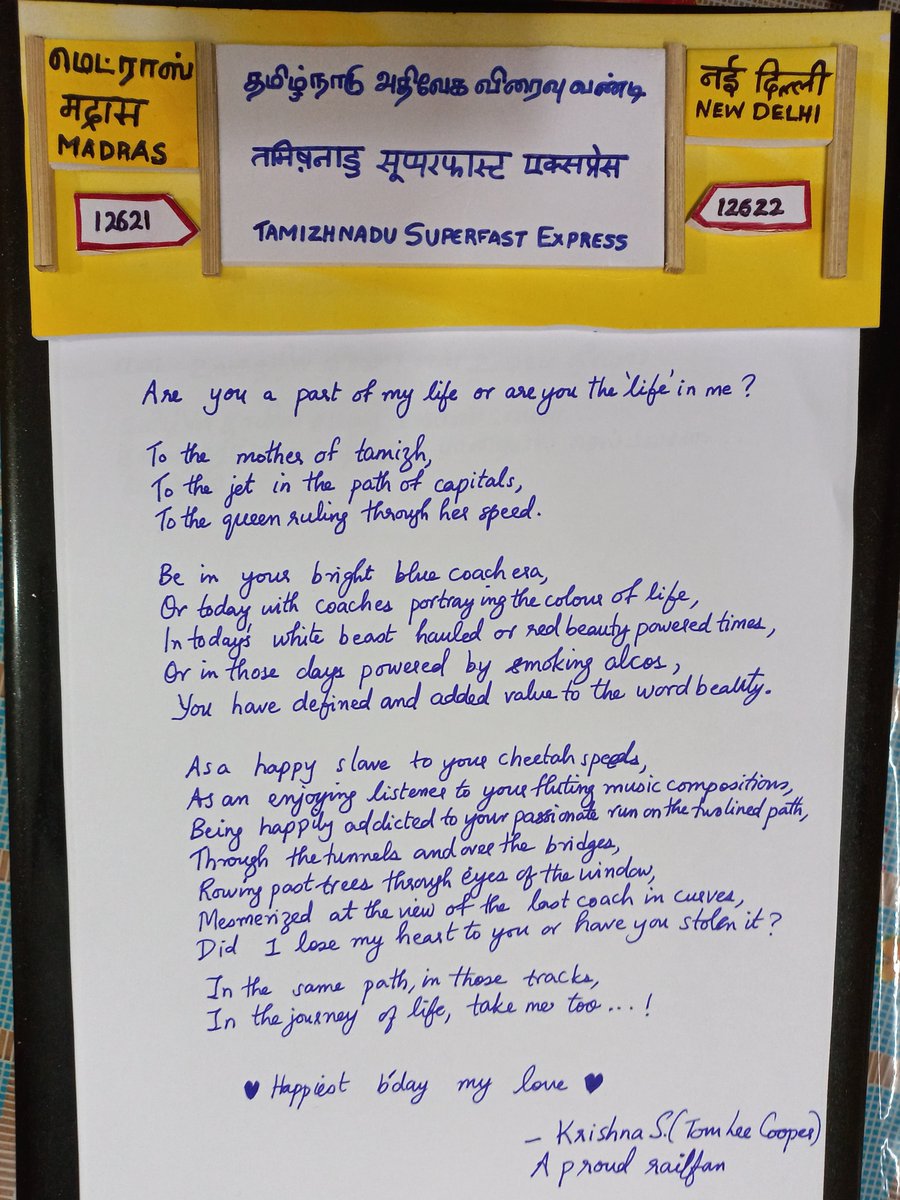 மெட்ராஸ்
मद्रास
MADRAS
12621
தமிழ்நாடு அதிவேக விரைவு வண்டி
तमिऴनाडु सूपरफास्ट एक्सप्रेस
TAMIZHNADU SUPERFAST EXPRESS
नई दिल्ली
NEW DELHI
12622
Are you a part of my life or are you the 'life' in me?
To the mother of tamizh,
To the jet in the path of capitals,
To the queen ruling through her speed.
Be in your bright blue coach era,
Or today with coaches portraying the colour of life,
In today's white beast hauled or red beauty powered times,
Or in those days powered by smoking alcos,
You have defined and added value to the word beauty.
As a happy slave to your cheetah speeds,
As an enjoying listener to your fluting music compositions,
Being happily addicted to your passionate run on the two lined path,
Through the tunnels and over the bridges,
Rowing past trees through eyes of the window,
Mesmerized at the view of the last coach in curves,
Did I lose my heart to you or have you stolen it?
In the same path, in those tracks,
In the journey of life, take me too...!
♥ Happiest b'day my love ♥
- Krishna S. (Tom Lee Cooper)
A proud railfan